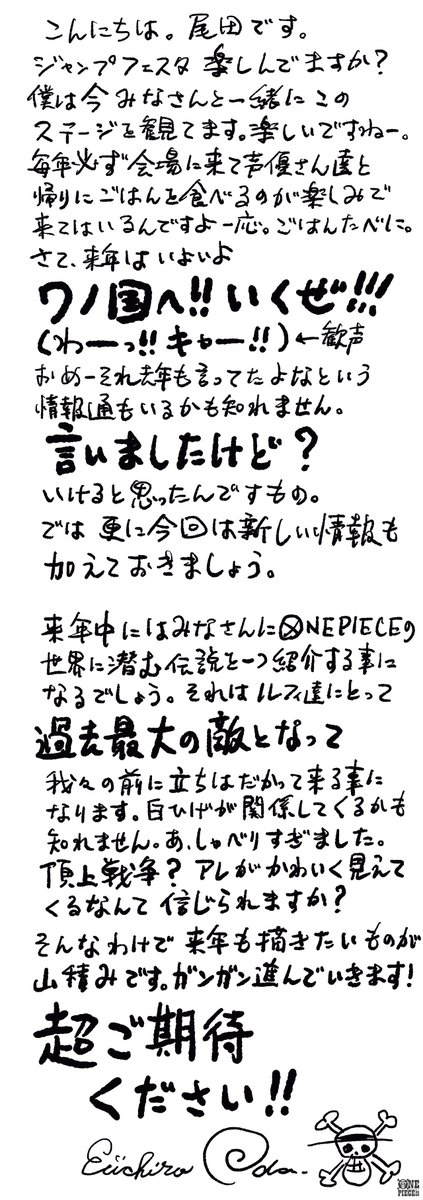 こんにちは。尾田です。
ジャンプフェスタ 楽しんでますか?
僕は今 みなさんと一緒に この
ステージを観てます。楽しいですねー。
毎年必ず会場に来て声優さん達と
帰りにごはんを食べるのが楽しみで
来てはいるんですよ一応。ごはんたべに。
さて、来年は いよいよ
ワノ国へ!! いくぜ!!!
(わーっ!! キャー!!)←歓声
おめーそれ去年も言ってたよなという
情報通もいるかも知れません。
言いましたけど?
いけると思ったんですもの。
では 更に今回は新しい情報も
加えておきましょう。
来年中にはみなさんにONE PIECEの
世界に潜む伝説を一つ紹介する事に
なるでしょう。それは ルフィ達にとって
過去最大の敵となって
我々の前に立ちはだかって来る事に
なります。白ひげが関係してくるかも
知れません。あ、しゃべりすぎました。
頂上戦争? アレがかわいく見えて
くるなんて信じられますか?
そんなわけで 来年も描きたいものが
山積みです。ガンガン進んでいきます!
超ご期待
ください!!
Eiichiro Oda.
ONE
PIECE